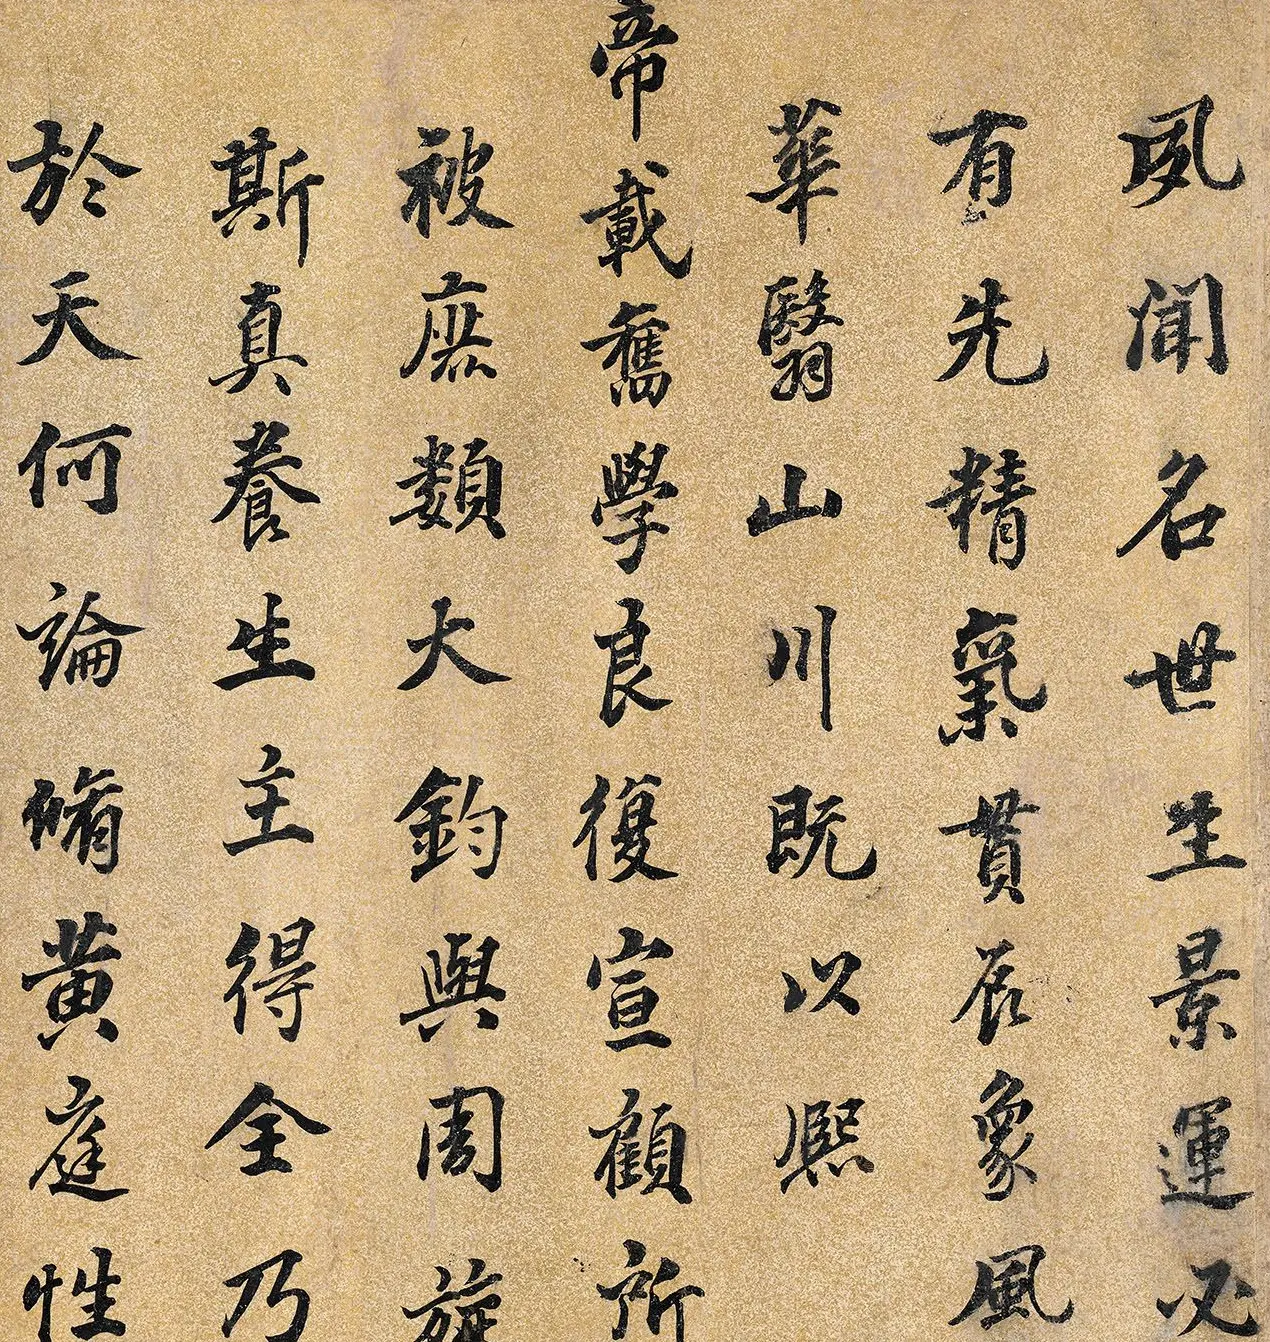 夙聞名世生景運必
有先精氣貫辰象風
華翳山川既以熙
帝載奮學良復宣顧所
被庶類大鈞與周旋
斯真養生主得全乃
於天何論脩黃庭性